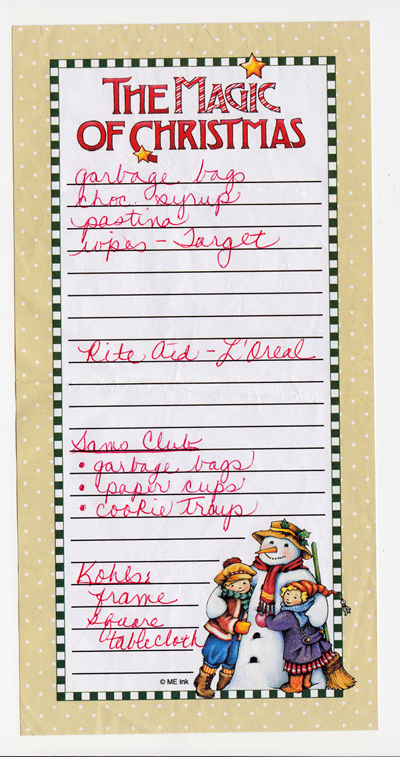 THE MAGIC
OF CHRISTMAS
garbage bags
choc. syrup
pastina
wipes - Target
Rite Aid - L'Oreal
Sams Club
• garbage bags
• paper cups
• cookie trays
Kohls:
frame
square
tablecloth
© ME Ink